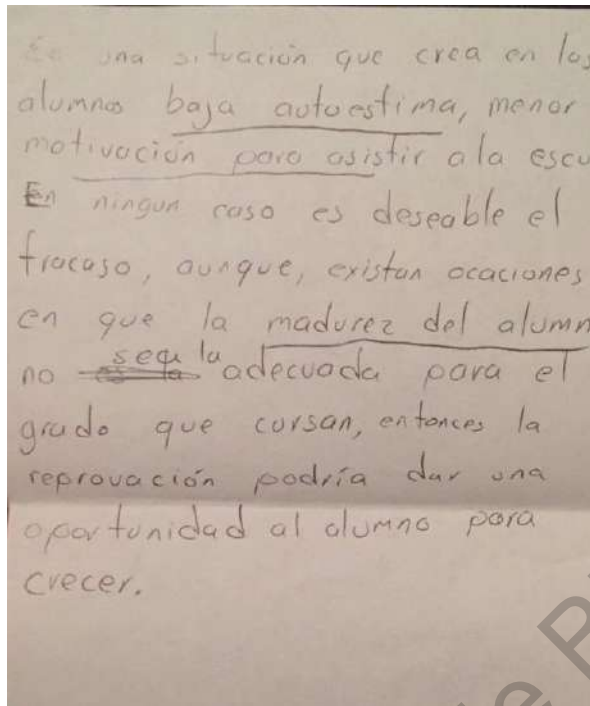 Es una situación que crea en los
alumnos baja autoestima, menor
motivación para asistir a la escu
En ningun caso es deseable el
fracaso, aunque, existan ocaciones
en que la madurez del alumn
no sea la adecuada para el
grado que cursan, entonces la
reprovación podría dar una
oportunidad al alumno para
crecer.